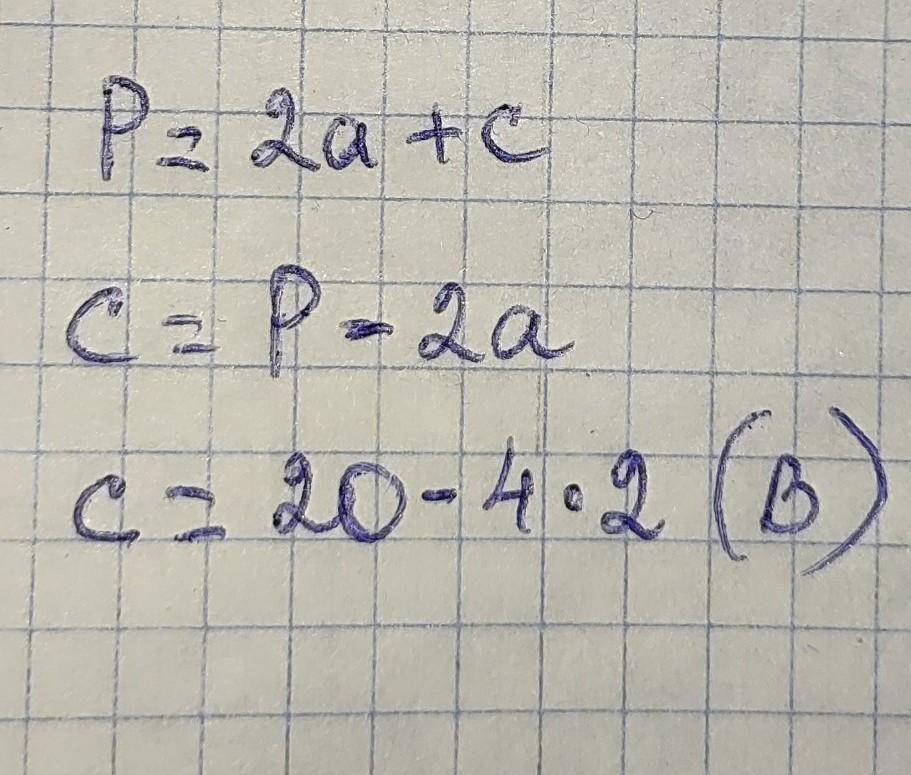 P = 2a + c
c = P - 2a
c = 20 - 4 · 2 (B)